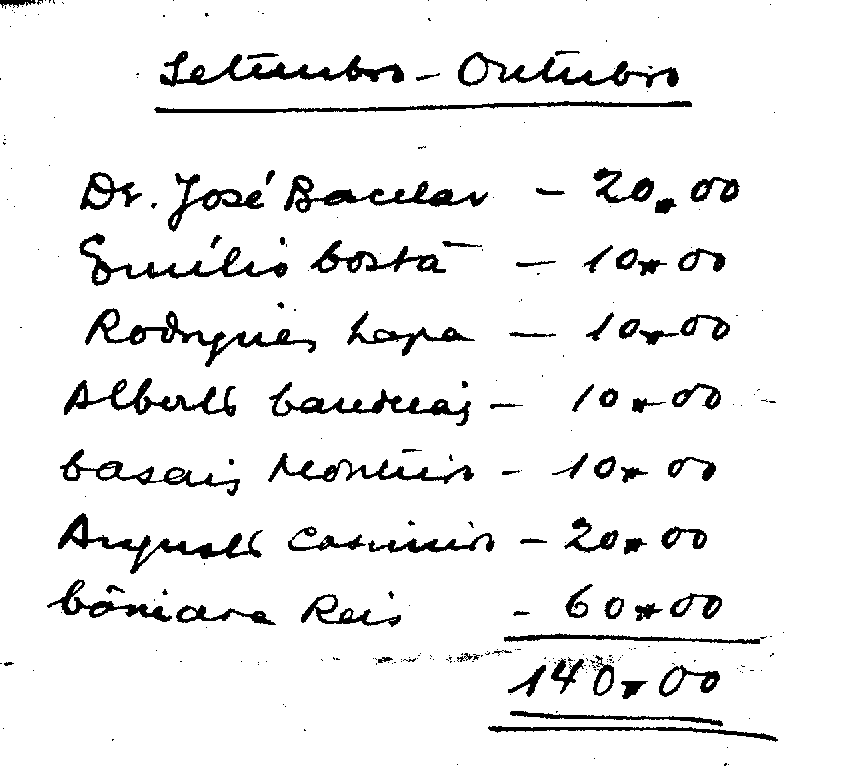 Setembro - Outubro
Dr. José Bacelar - 20.00
Emílio Costa - 10.00
Rodrigues Lapa - 10.00
Alberto Candeias - 10.00
Casais Monteiro - 10.00
Augusto Casimiro - 20.00
Câmara Reis - 60.00
140.00